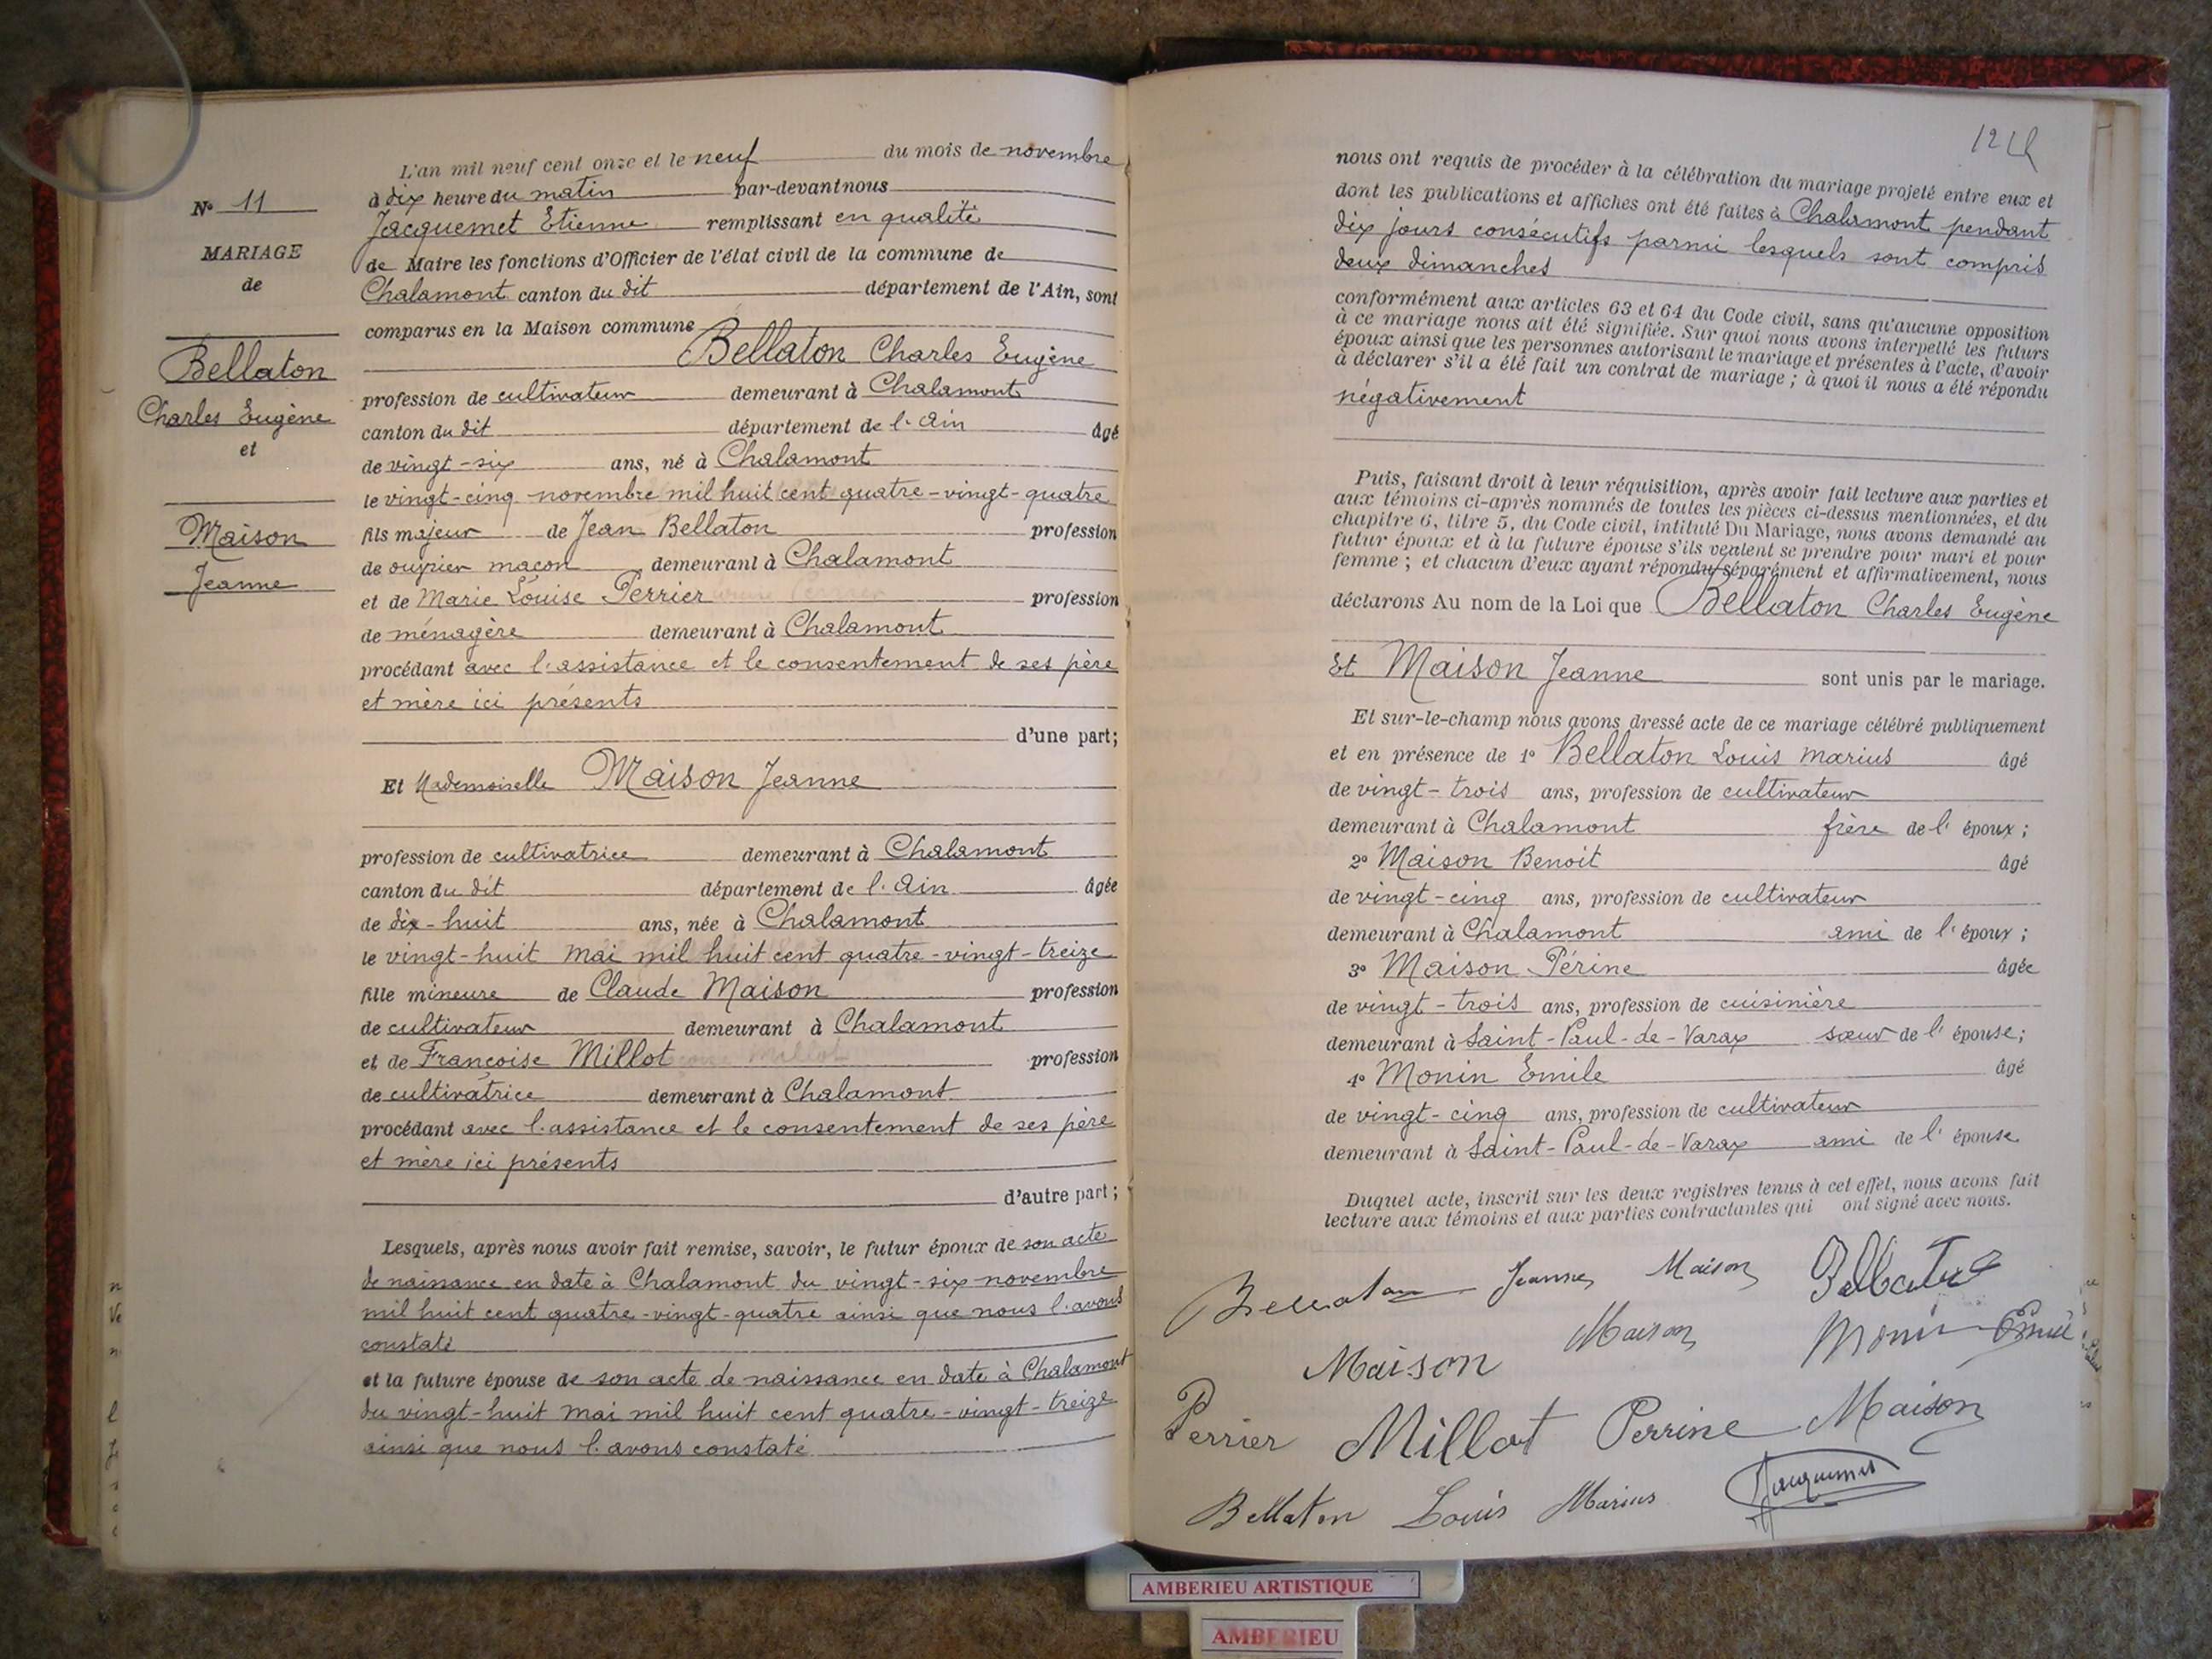 N° 11
MARIAGE
de
Bellaton
Charles Eugène
et
Maison
Jeanne
L'an mil neuf cent onze et le neuf du mois de novembre
à dix heure du matin par-devant nous
Jacquemet Etienne remplissant en qualité
de Maire les fonctions d'Officier de l'état civil de la commune de
Chalamont canton du dit département de l'Ain, sont
comparus en la Maison commune
Bellaton Charles Eugène
profession de cultivateur demeurant à Chalamont
canton du dit département de l'Ain âgé
de vingt-six ans, né à Chalamont
le vingt-cinq novembre mil huit cent quatre-vingt-quatre
fils majeur de Jean Bellaton profession
de ouvrier maçon demeurant à Chalamont
et de Marie Louise Perrier profession
de ménagère demeurant à Chalamont
procédant avec l'assistance et le consentement de ses père
et mère ici présents
d'une part;
Et Mademoiselle Maison Jeanne
profession de cultivatrice demeurant à Chalamont
canton du dit département de l'Ain âgée
de dix-huit ans, née à Chalamont
le vingt-huit mai mil huit cent quatre-vingt-treize
fille mineure de Claude Maison profession
de cultivateur demeurant à Chalamont
et de Françoise Millot profession
de cultivatrice demeurant à Chalamont
procédant avec l'assistance et le consentement de ses père
et mère ici présents
d'autre part;
Lesquels, après nous avoir fait remise, savoir, le futur époux de son acte
de naissance en date à Chalamont du vingt-six novembre
mil huit cent quatre-vingt-quatre ainsi que nous l'avons
constaté
et la future épouse de son acte de naissance en date à Chalamont
du vingt-huit mai mil huit cent quatre-vingt-treize
ainsi que nous l'avons constaté
124
nous ont requis de procéder à la célébration du mariage projeté entre eux et
dont les publications et affiches ont été faites à Chalamont pendant
dix jours consécutifs parmi lesquels sont compris
deux dimanches
conformément aux articles 63 et 64 du Code civil, sans qu'aucune opposition
à ce mariage nous ait été signifiée. Sur quoi nous avons interpellé les futurs
époux ainsi que les personnes autorisant le mariage et présentes à l'acte, d'avoir
à déclarer s'il a été fait un contrat de mariage; à quoi il nous a été répondu
négativement
Puis, faisant droit à leur réquisition, après avoir fait lecture aux parties et
aux témoins ci-après nommés de toutes les pièces ci-dessus mentionnées, et du
chapitre 6, titre 5, du Code civil, intitulé Du Mariage, nous avons demandé au
futur époux et à la future épouse s'ils veulent se prendre pour mari et pour
femme; et chacun d'eux ayant répondu séparément et affirmativement, nous
déclarons Au nom de la Loi que Bellaton Charles Eugène
Et Maison Jeanne sont unis par le mariage.
Et sur-le-champ nous avons dressé acte de ce mariage célébré publiquement
et en présence de 1° Bellaton Louis Marius âgé
de vingt-trois ans, profession de cultivateur
demeurant à Chalamont frère de l'époux;
2° Maison Benoit âgé
de vingt-cinq ans, profession de cultivateur
demeurant à Chalamont ami de l'époux;
3° Maison Périne âgée
de vingt-trois ans, profession de cuisinière
demeurant à Saint-Paul-de-Varax sœur de l'épouse;
4° Monin Emile âgé
de vingt-cinq ans, profession de cultivateur
demeurant à Saint-Paul-de-Varax ami de l'épouse
Duquel acte, inscrit sur les deux registres tenus à cet effet, nous avons fait
lecture aux témoins et aux parties contractantes qui ont signé avec nous.
Bellaton Jeanne Maison Bellaton
Maison Maison Monin Emile
Perrier Millot Perrine Maison
Bellaton Louis Marius Jacquemet
AMBERIEU ARTISTIQUE
AMBERIEU